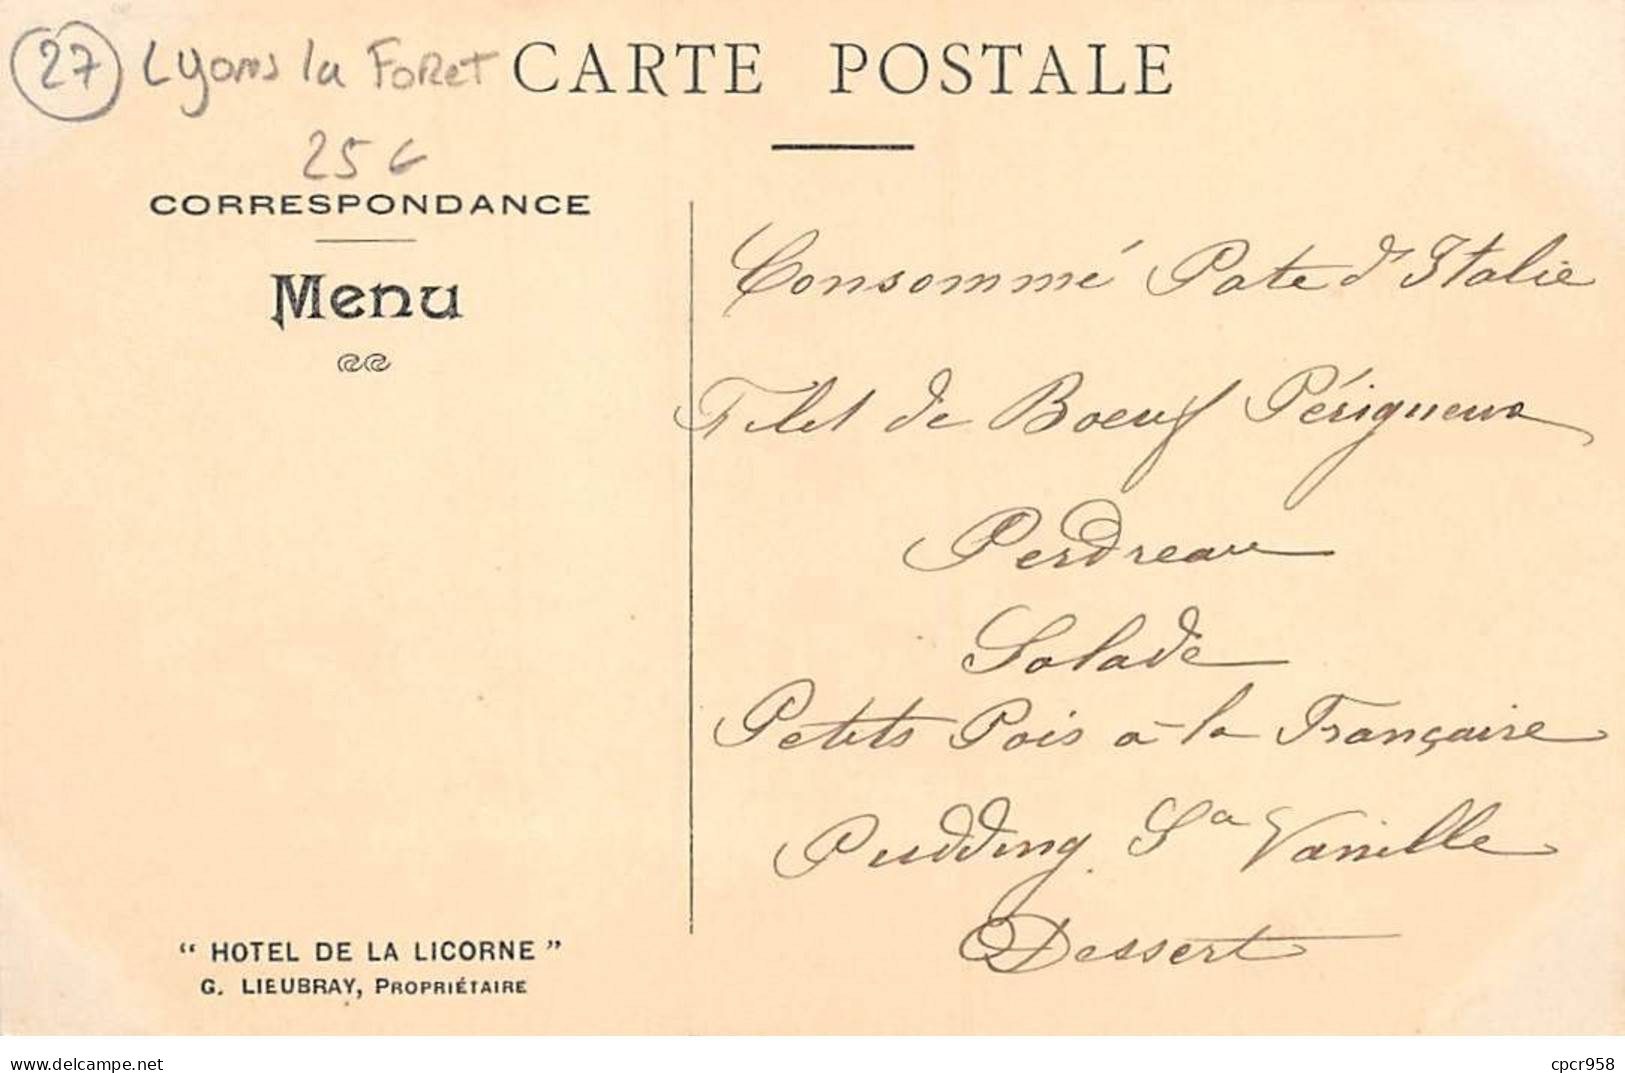 27 Lyons la Foret
CARTE POSTALE
25€
CORRESPONDANCE
Menu
Consommé Pate d'Italie
Filet de Boeuf Périgueux
Perdreau
Salade
Petits Pois à la Française
Pudding Sᵃ Vanille
Dessert
“ HOTEL DE LA LICORNE ”
G. LIEUBRAY, PROPRIÉTAIRE
delcampe.net
cpcr958